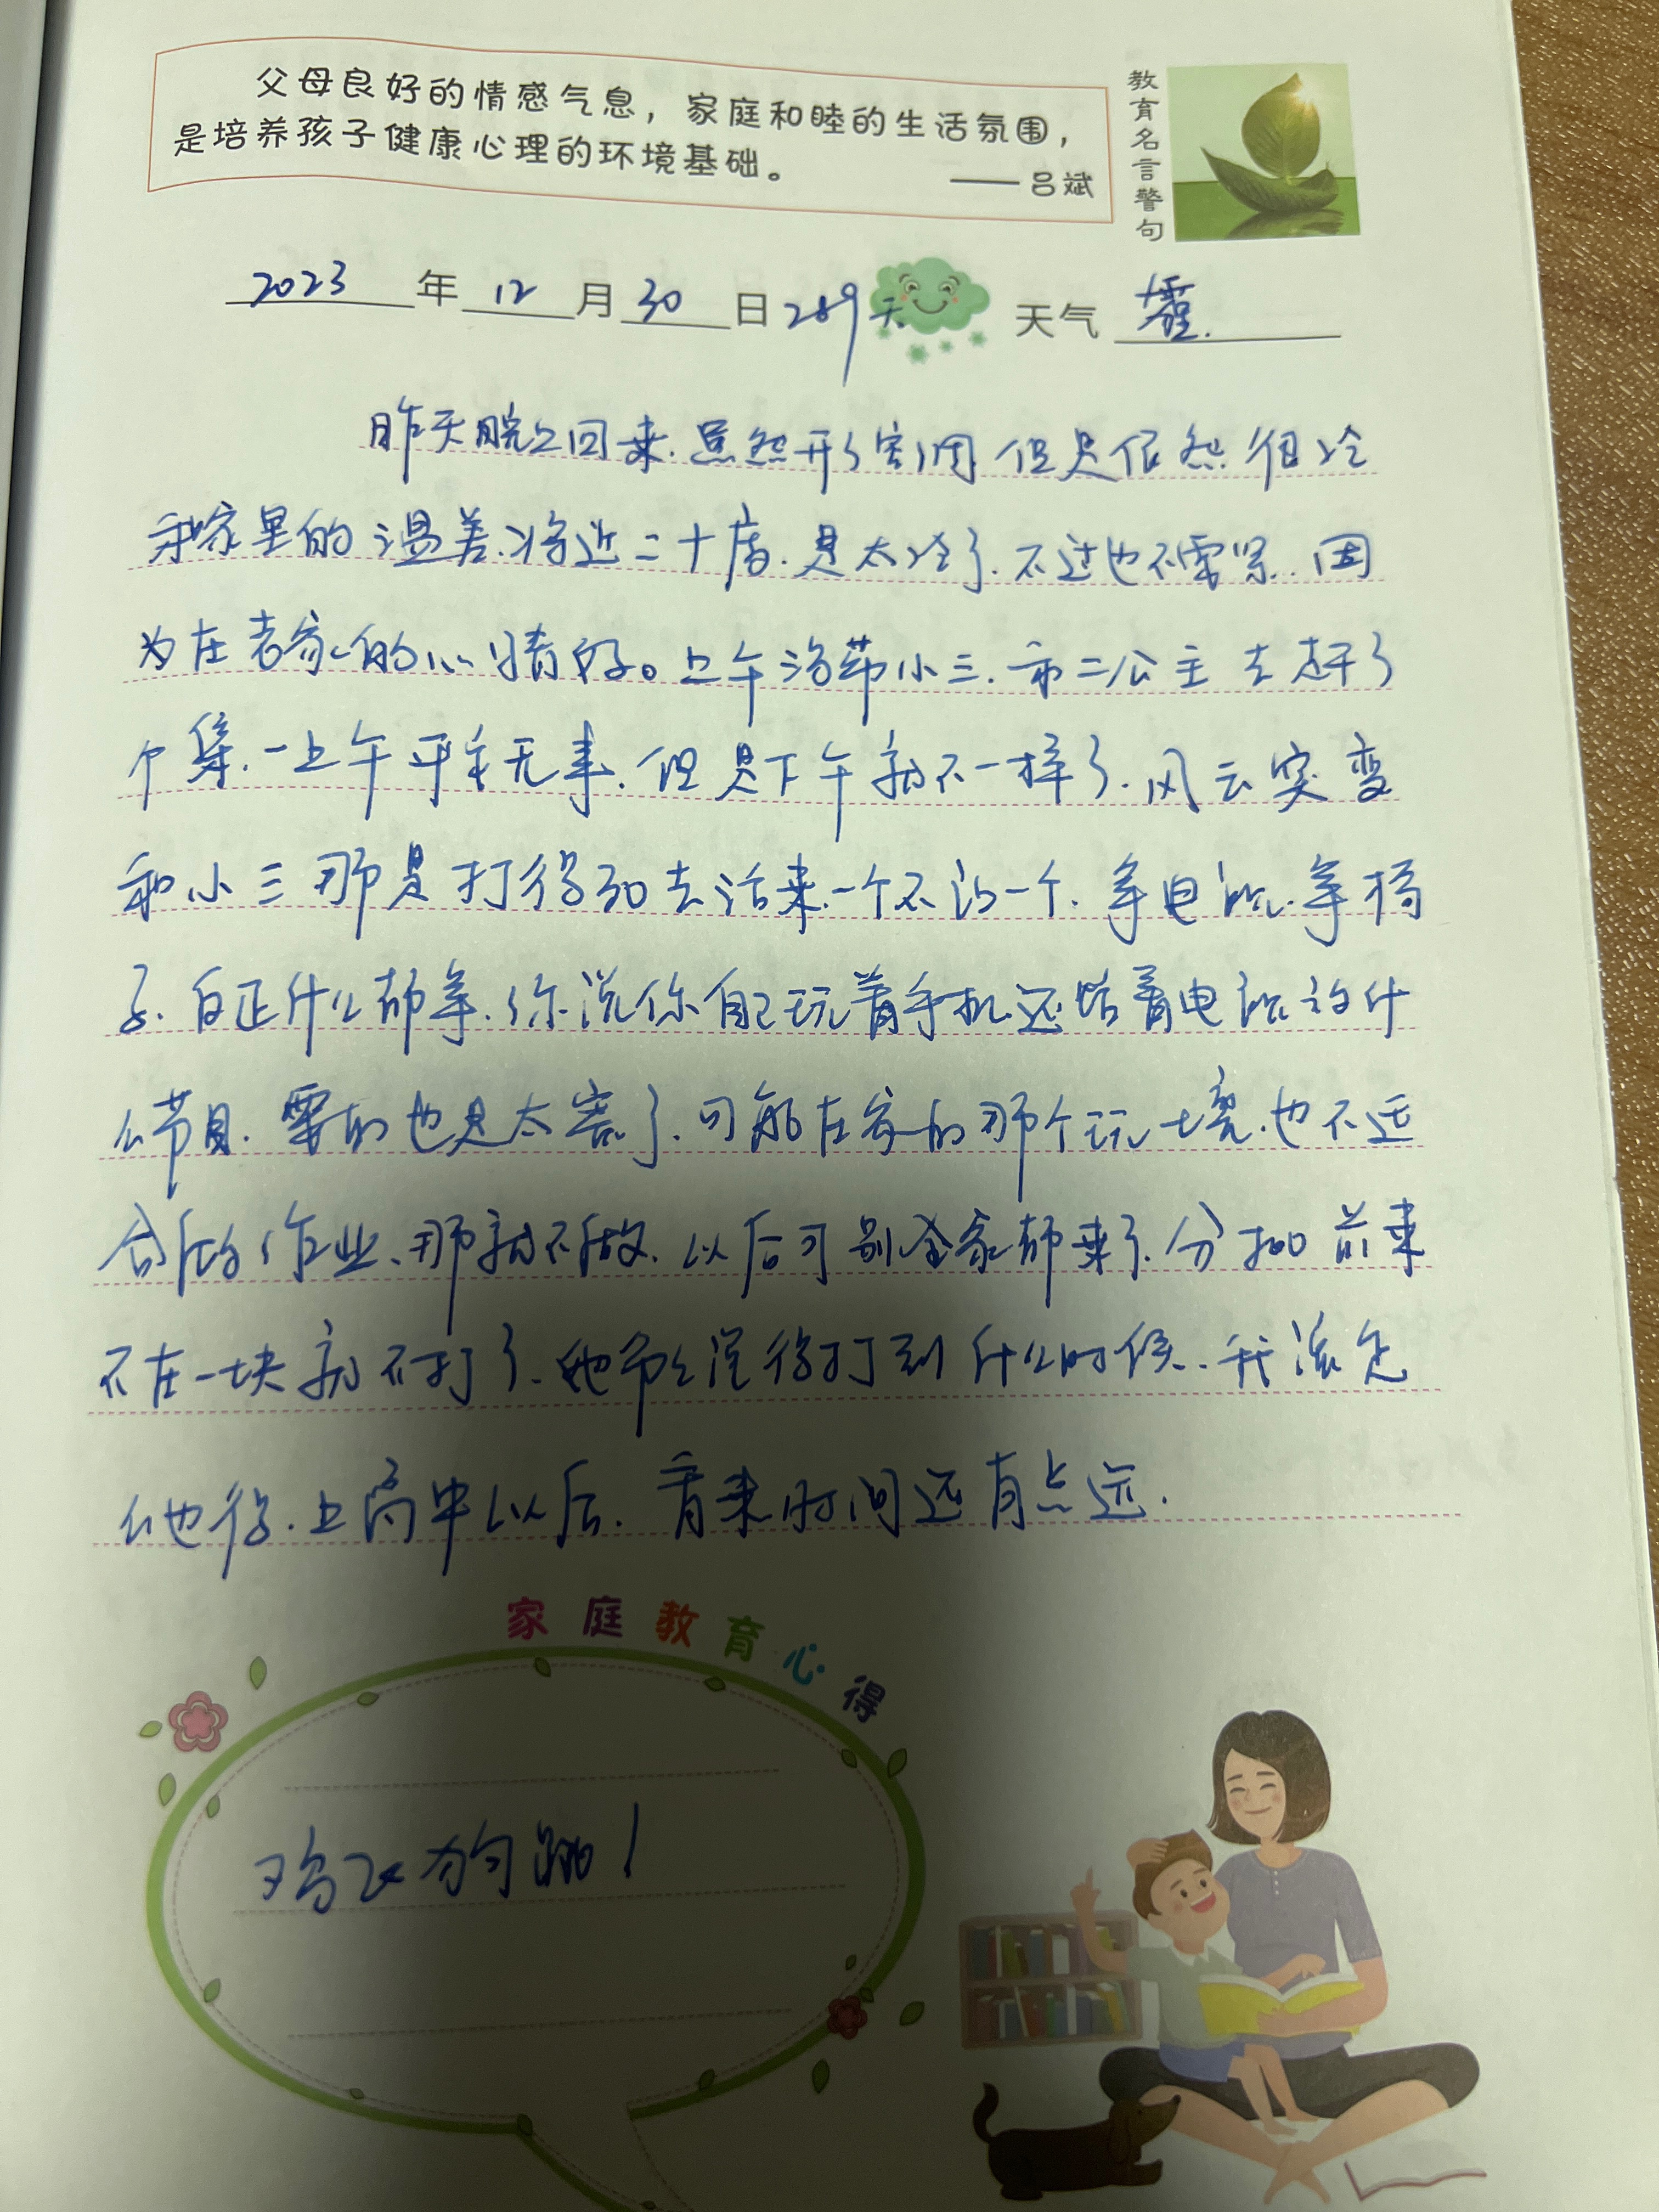 父母良好的情感气息，家庭和睦的生活氛围，
是培养孩子健康心理的环境基础。
——吕斌
教育名言警句
2023年12月30日289天 天气 霾.
昨天晚上回来.虽然开了空调但是依然很冷
和家里的温差.将近二十度.是太冷了.不过也不要紧..因
为在老家的心情好。上午沿带小三.和二公主去赶了
个集.一上午平安无事.但是下午就不一样了.风云突变
和小三那是打得死去活来.一个不让一个.争电视.争椅
子.反正什么都争.你说你自己玩着手机还占着电视设什
么节目.要的也是太害了.可能在家的那个环境.也不适
合后的作业、那就不做.以后可别全家都来了.分批前来
不在一块就不打了.她爷爷说得打到什么时候..我说怎
么也得.上高中以后.看来时间还有点远.
家庭教育心得
鸡飞狗跳！